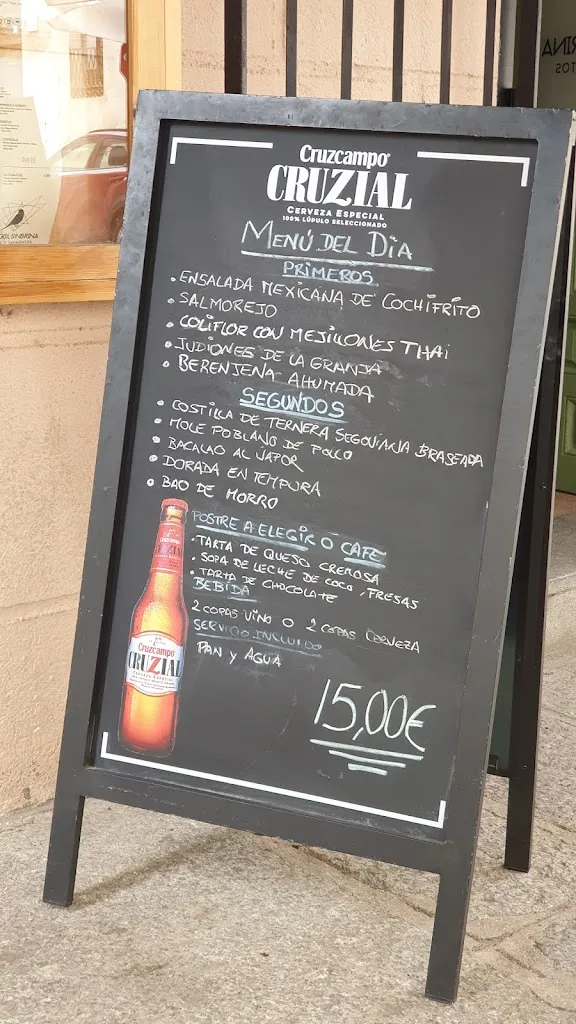 Cruzcampo
CRUZIAL
CERVEZA ESPECIAL
100% LÚPULO SELECCIONADO
MENÚ DEL DÍA
PRIMEROS
• ENSALADA MEXICANA DE COCHIFRITO
• SALMOREJO
• COLIFLOR CON MEJILLONES THAI
• JUDIONES DE LA GRANJA
• BERENJENA AHUMADA
SEGUNDOS
• COSTILLA DE TERNERA SEGOVIANA BRASEADA
• MOLE POBLANO DE POLLO
• BACALAO AL VAPOR
• DORADA EN TEMPURA
• BAO DE MORRO
POSTRE A ELEGIR O CAFE
• TARTA DE QUESO CREMOSA
• SOPA DE LECHE DE COCO, FRESAS
• TARTA DE CHOCOLATE
BEBIDA
2 COPAS VINO O 2 COPAS CERVEZA
SERVICIO INCLUIDO
PAN Y AGUA
15,00€
Cruzcampo
CRUZIAL
CERVEZA ESPECIAL